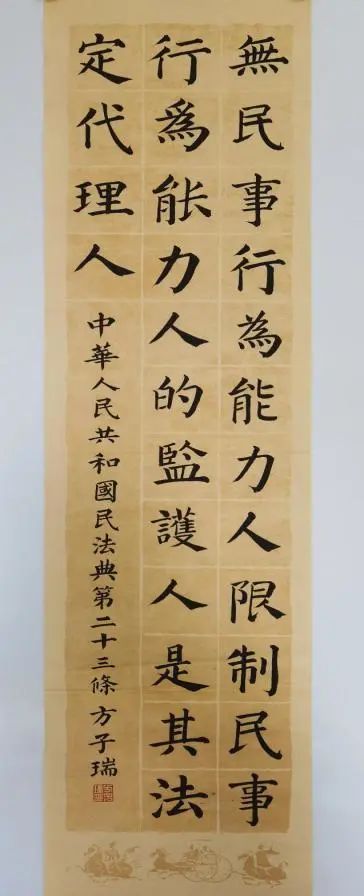 無民事行為能力人限制民事
行為能力人的監護人是其法
定代理人
中華人民共和國民法典第二十三條方子瑞